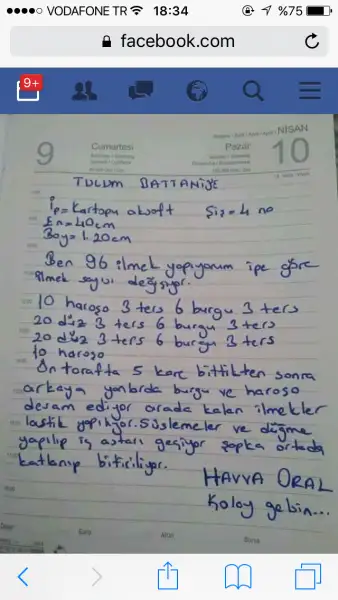 VODAFONE TR 18:34 %75
facebook.com
9+
NİSAN
9 Cumartesi Pazar 10
TULUM BATTANİYE
İp= Kartopu aksoft Şiş= 4 no
En= 40cm
Boy= 1.20cm
Ben 96 ilmek yapıyorum ipe göre
ilmek sayısı değişiyor.
10 haroşo 3 ters 6 burgu 3 ters
20 düz 3 ters 6 burgu 3 ters
20 düz 3 ters 6 burgu 3 ters
10 haroşo
Ön tarafta 5 kare bittikten sonra
arkaya yanlarda burgu ve haroşo
devam ediyor orada kalan ilmekler
lastik yapılıyor. Süslemeler ve düğme
yapılıp iç astarı geçiyor şapka ortada
katlanıp bitiriliyor.
HAVVA ORAL
Kolay gelsin...